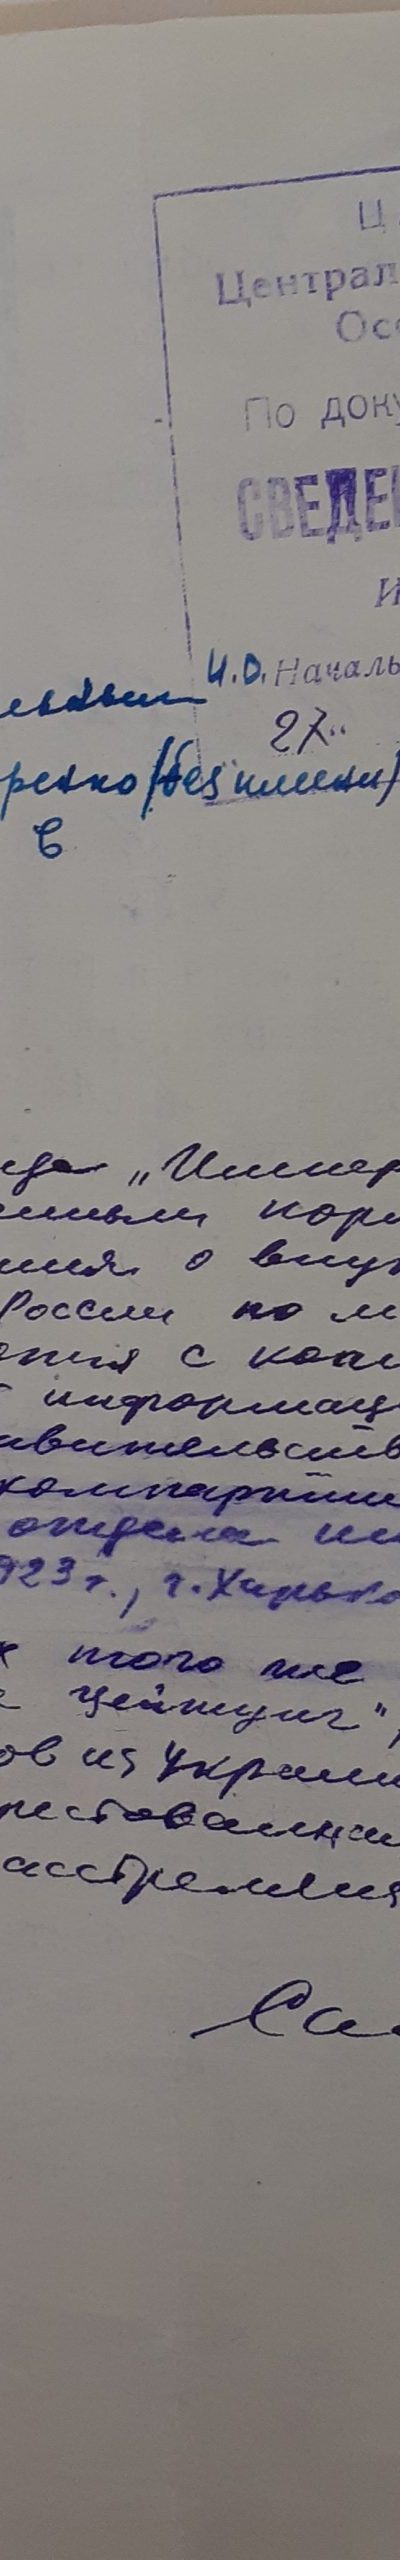 Ц
Централ
Осо
По доку
СВЕДЕН
И
И.О. Началь
27
ренко (без имени)
в
„Импер
ния о вну
России по м
с копи
информац
авительств
компартии
отдела
923 г., г. Харько
х того же
Цейтунг",
ов из Украин
рестованны
асстрелян
Са